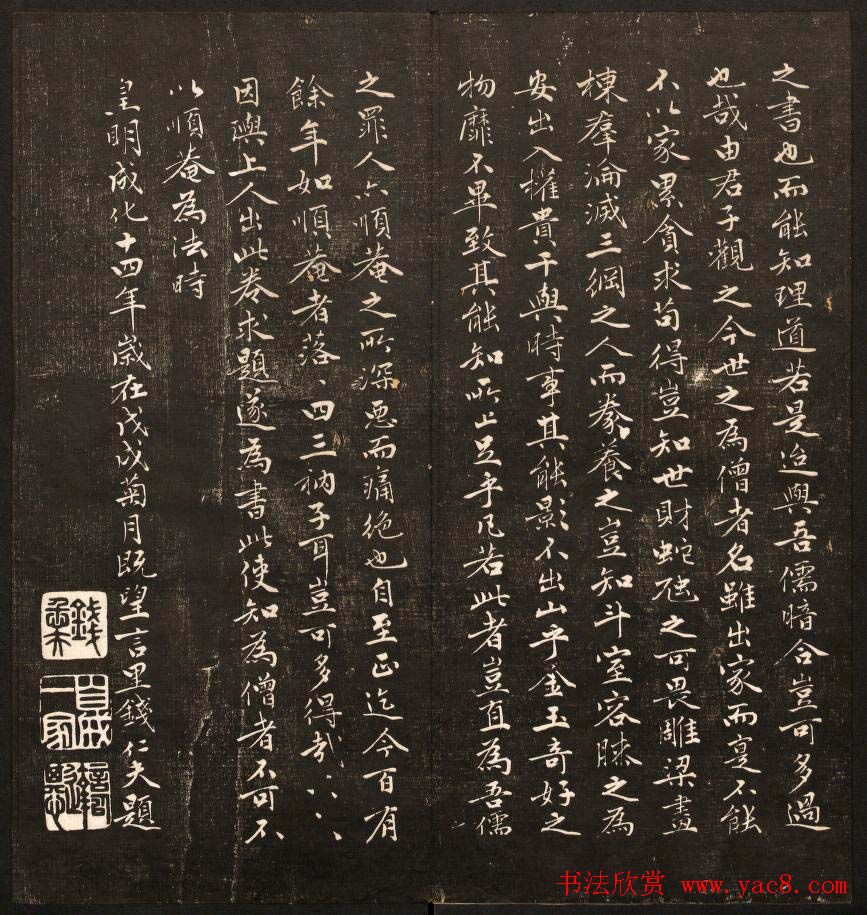 之書也而能知理道若是迨與吾儒暗合豈可多過
也哉由君子觀之今世之為僧者名雖出家而寔不能
不以家累貪求苟得豈知世財蛇虺之可畏雕梁畫
棟羣淪滅三綱之人而豢養之豈知斗室容膝之為
安出入權貴干與時事其能影不出山乎金玉奇好之
物靡不畢致其能知所止足乎凡若此者豈直為吾儒
之罪人亦順菴之所深惡而痛絶也自至正迄今百有
餘年如順菴者落、四三衲子耳豈可多得哉
因與上人出此卷求題遂為書此使知為僧者不可不
以順菴為法時
皇明成化十四年歲在戊戌菊月既望言里錢仁夫題
錢
一家
书法欣赏 www.yac8.com